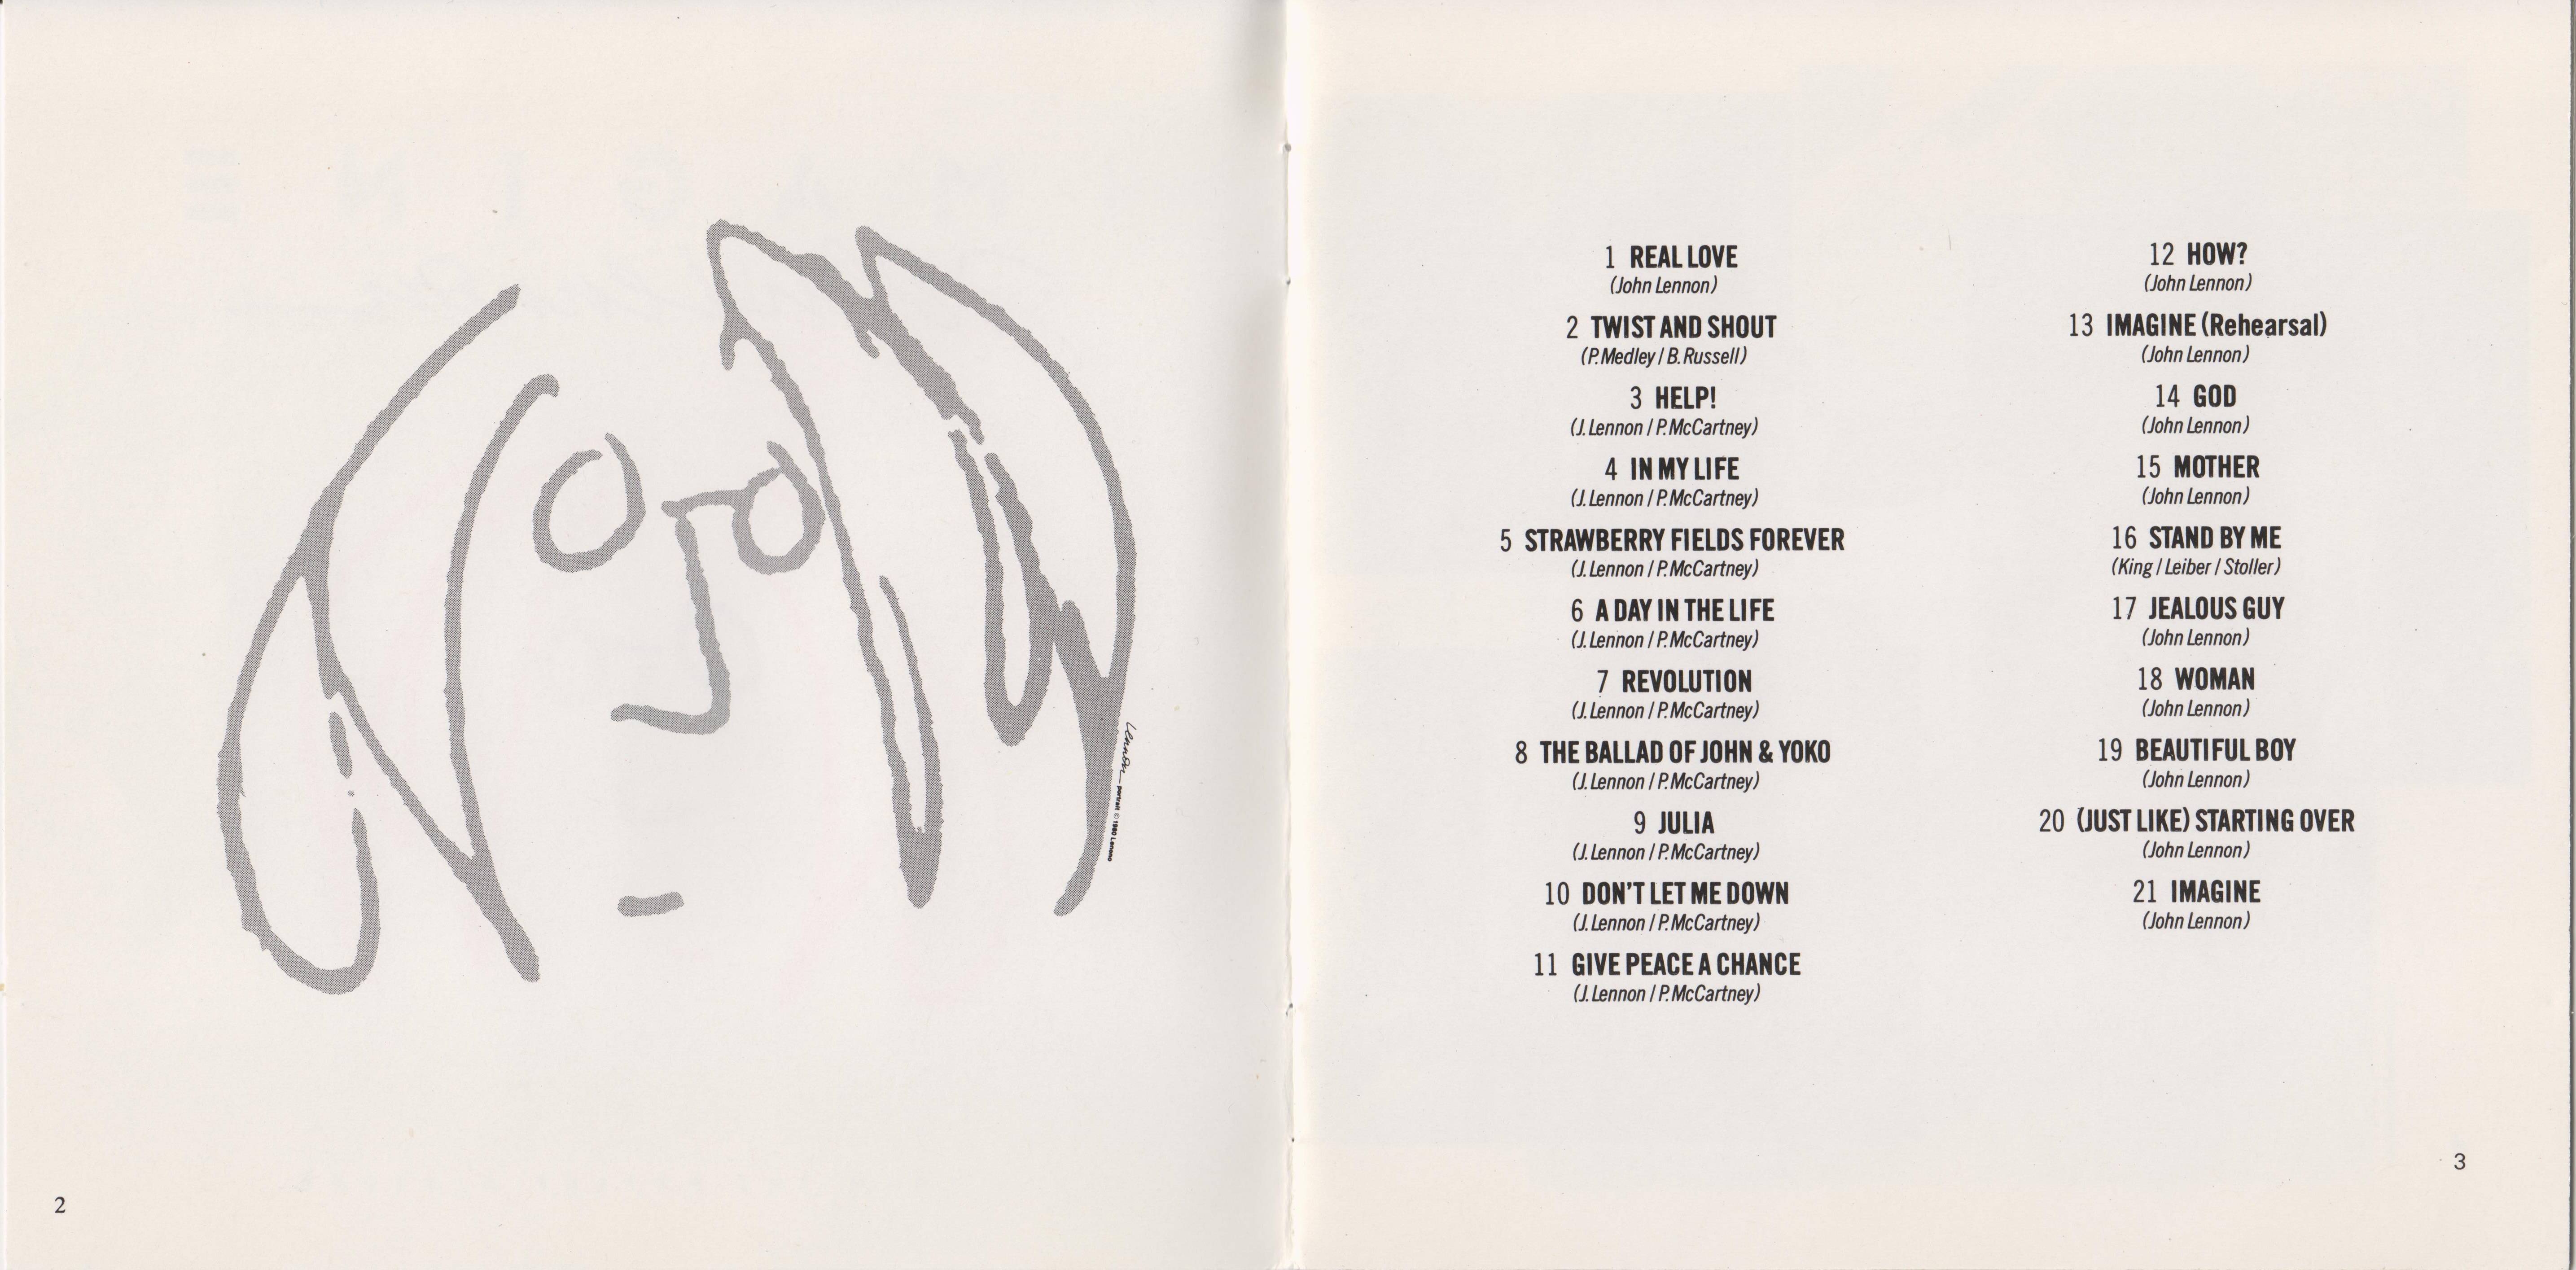 lennon portrait © 1980 Lenono
2
1 REAL LOVE
(John Lennon)
2 TWIST AND SHOUT
(P. Medley / B. Russell)
3 HELP!
(J. Lennon / P. McCartney)
4 IN MY LIFE
(J. Lennon / P. McCartney)
5 STRAWBERRY FIELDS FOREVER
(J. Lennon / P. McCartney)
6 A DAY IN THE LIFE
(J. Lennon / P. McCartney)
7 REVOLUTION
(J. Lennon / P. McCartney)
8 THE BALLAD OF JOHN & YOKO
(J. Lennon / P. McCartney)
9 JULIA
(J. Lennon / P. McCartney)
10 DON'T LET ME DOWN
(J. Lennon / P. McCartney)
11 GIVE PEACE A CHANCE
(J. Lennon / P. McCartney)
12 HOW?
(John Lennon)
13 IMAGINE (Rehearsal)
(John Lennon)
14 GOD
(John Lennon)
15 MOTHER
(John Lennon)
16 STAND BY ME
(King / Leiber / Stoller)
17 JEALOUS GUY
(John Lennon)
18 WOMAN
(John Lennon)
19 BEAUTIFUL BOY
(John Lennon)
20 (JUST LIKE) STARTING OVER
(John Lennon)
21 IMAGINE
(John Lennon)
3